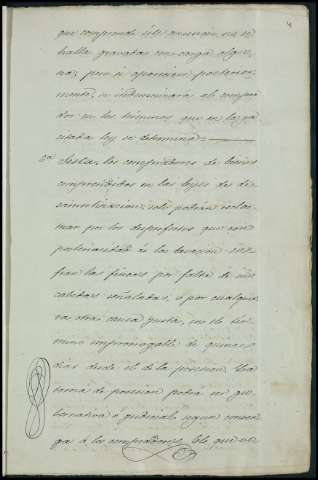 4
que comprende este anuncio, no se
halla gravadas con carga algu-
na; pero si aparecieren posterior-
mente, se indemnizará al compra-
dor en los términos que en la ya
citada ley se determina.
6ª Sesta. Los compradores de bienes
comprendidos en las leyes de de-
samortizacion, solo podrán recla-
mar por los desperfectos que con
posterioridad á la tasacion su-
fran las fincas por falta de sus
cabidas señaladas, ó por cualquie-
ra otra causa justa, en el tér-
mino improrrogable de quince
dias desde el de la posesion. La
toma de posesion podrá ser gu-
bernativa ó judicial segun conven-
ga á los compradores. El que ve-